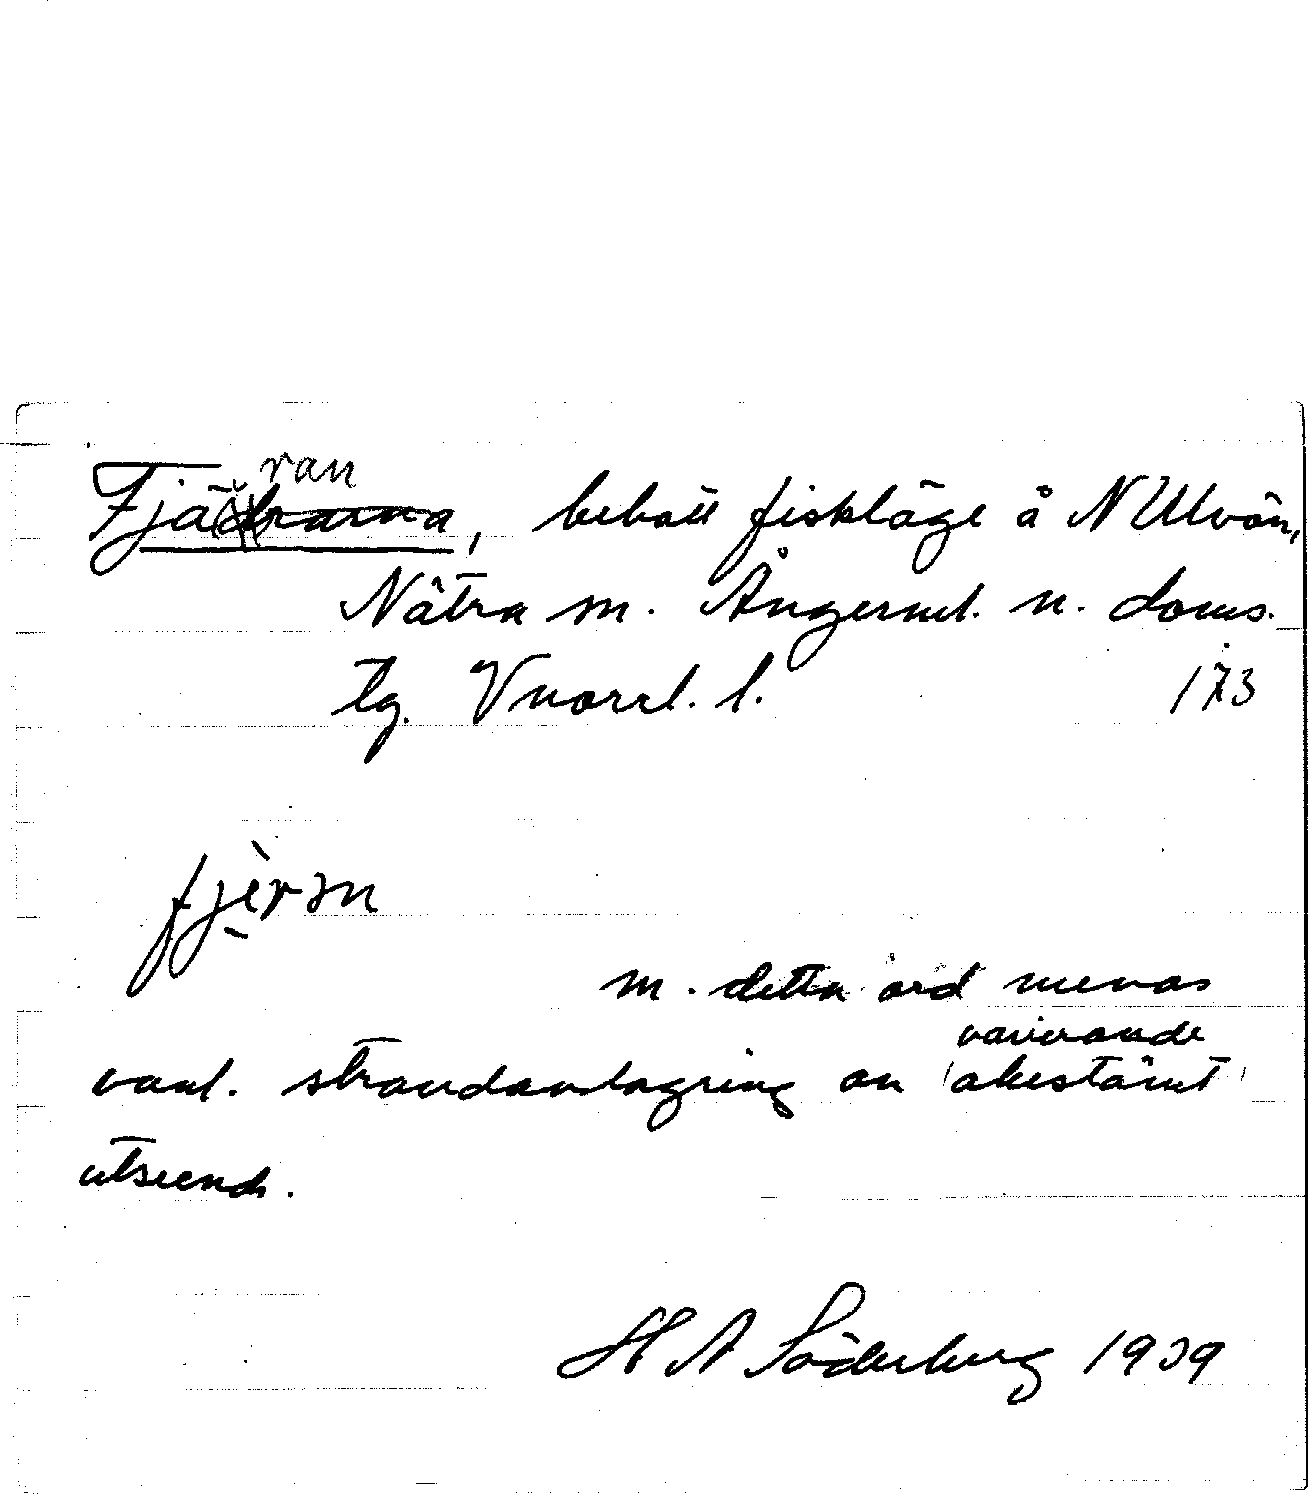 Fjäran, bebott fiskläge å N Ulvön,
Nätra sn. Ångerml. n. doms.
tg. Vnorrl. l. 173
fjèrɜn
m. detta ord menas
varierande
vanl. strandavlagring av obestämt
utseende.
H A Söderberg 1939